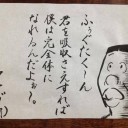 ふぅぐたくーん
君を吸収さえすれば
僕は完全体に
なれるんだよぉ〜。